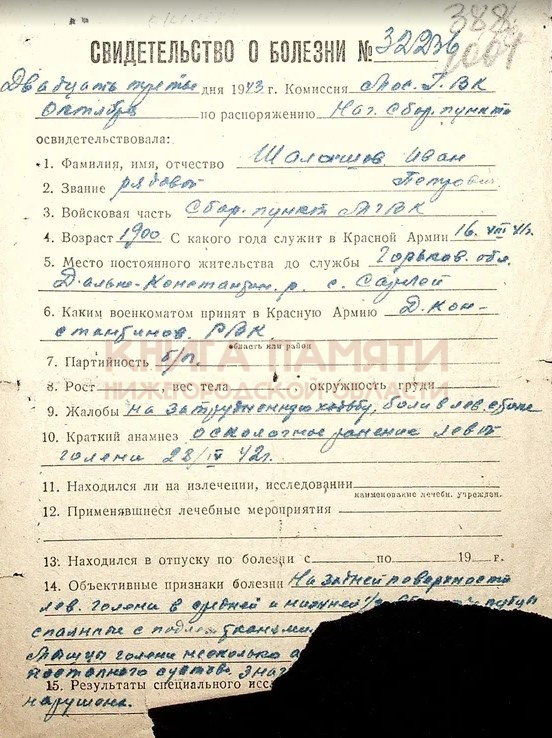 388
1001
СВИДЕТЕЛЬСТВО О БОЛЕЗНИ № 32236
Двадцать третье дня 1943 г. Комиссия Мос. Г. ВК
Октября по распоряжению Нач. Сбор. пункта
освидетельствовала:
1. Фамилия, имя, отчество Иван
2. Звание рядовой Петрович
3. Войсковая часть Сбор. пункт МГВК
4. Возраст 1900 С какого года служит в Красной Армии 16. VIII 41г.
5. Место постоянного жительства до службы Горьков. обл.
Д-ально-Константин. р. с.
6. Каким военкоматом принят в Красную Армию Д. Кон-
стантинов РВК
область или район
КНИГА ПАМЯТИ
7. Партийность б/п
НИЖЕГОРОДСКОЙ ОБЛАСТИ
8. Рост , вес тела , окружность груди
9. Жалобы на затрудненную ходьбу, боли в лев. стопе
10. Краткий анамнез осколочное ранение левой
голени 28/IV 42г.
11. Находился ли на излечении, исследовании
наименование лечебн. учрежден.
12. Применявшиеся лечебные мероприятия
13. Находился в отпуску по болезни с по 19 г.
14. Объективные признаки болезни На задней поверхности
лев. голени в средней и нижней 1/3 рубцы
спаяные с подлеж. тканями
Мышцы голени несколько а
суства. Знач
15. Результаты специального исс
нарушена.